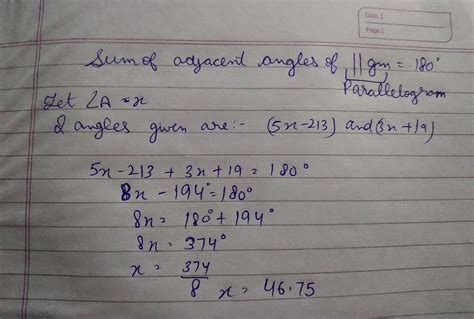 Date:
Page:
Sum of adjacent angles of ||gm = 180°
Parallelogram
Let ∠A = x
2 angles given are:- (5x-213) and (3x+19)
5x-213 + 3x+19 = 180°
8x - 194° = 180°
8x = 180° + 194°
8x = 374°
x = 374/8 x = 46.75